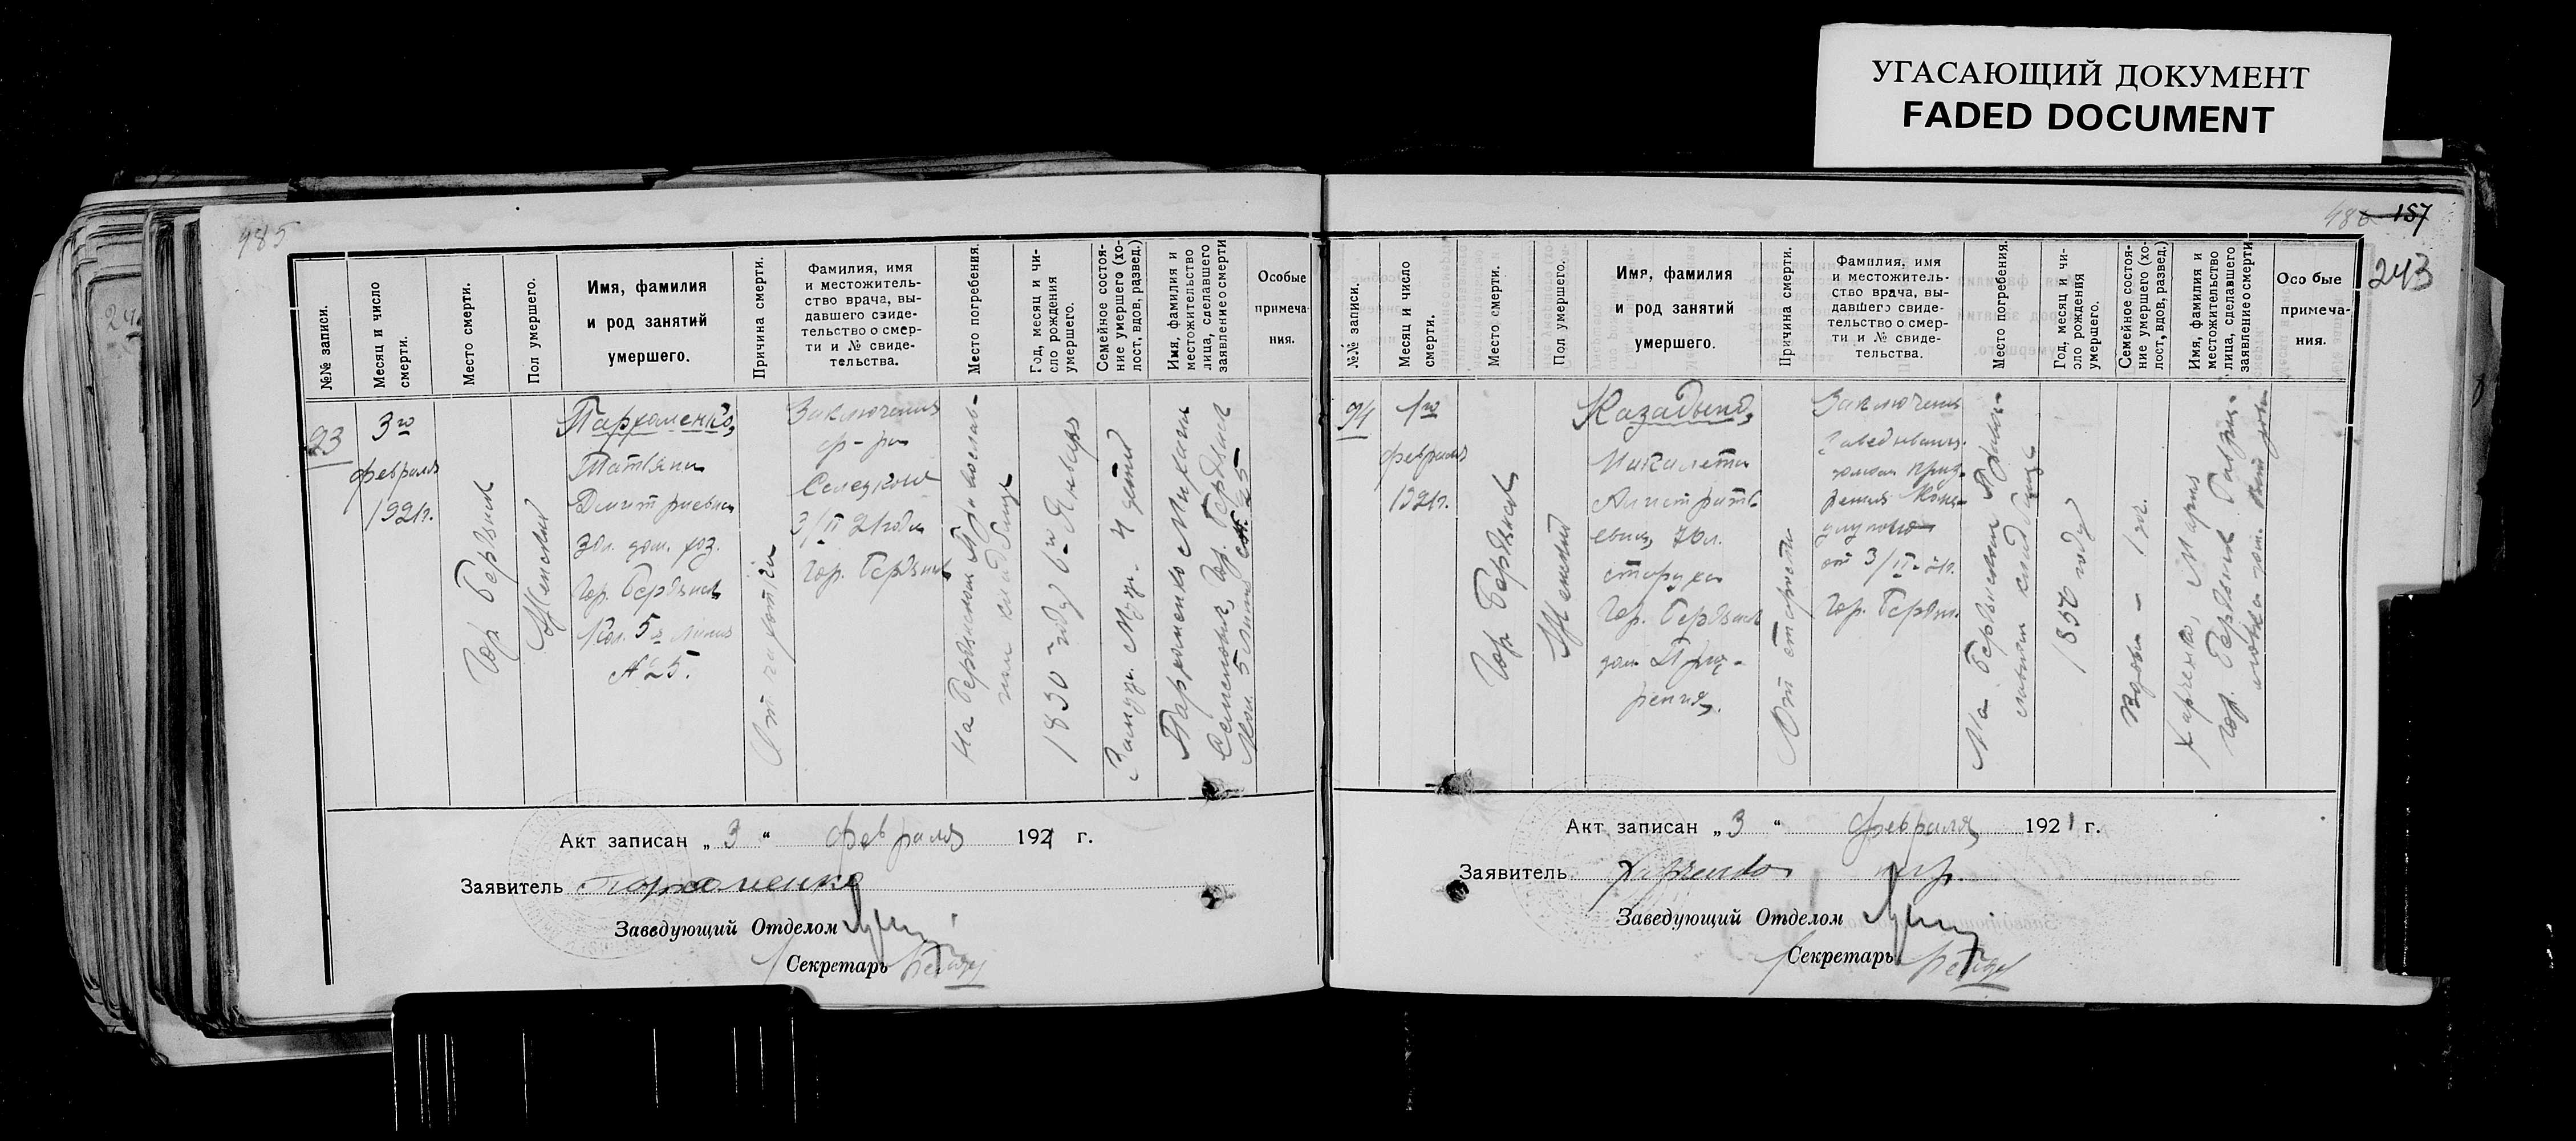 УГАСАЮЩИЙ ДОКУМЕНТ
FADED DOCUMENT
985
№№ записи.
Месяц и число
смерти.
Место смерти.
Пол умершего.
Имя, фамилия
и род занятий
умершего.
Причина смерти.
Фамилия, имя
и местожитель-
ство врача, вы-
давшего свиде-
тельство о смер-
ти и № свиде-
тельства.
Место погребения.
Год, месяц и чи-
сло рождения
умершего.
Семейное состоя-
ние умершего (хо-
лост, вдов, развед.)
Имя, фамилия и
местожительство
лица, сделавшего
заявление о смерти
Особые
примеча-
ния.
93
3го
февраля
1921г.
Гор. Бердянск
Женский
Пархоменко,
Татьяна
Дмитриевна
дом. хоз.
Гор. Бердянск
Кол. 5я Линия
№ 25.
От чахотки
Заключение
ф-ра
Селецкого
3/II 21 года
Гор. Бердянск
На Бердянском
кладбище
1830 году 6го Января
Замуж. Муж. 4 детей
Пархоменко Михаил
Семенович, Гор. Бердянск
5 Линия 25
Акт записан „ 3 “ февраля 1921 г.
Заявитель Пархоменко
Заведующий Отделом
Секретарь
157
243
№№ записи.
Месяц и число
смерти.
Место смерти.
Пол умершего.
Имя, фамилия
и род занятий
умершего.
Причина смерти.
Фамилия, имя
и местожитель-
ство врача, вы-
давшего свиде-
тельство о смер-
ти и № свиде-
тельства.
Место погребения.
Год, месяц и чи-
сло рождения
умершего.
Семейное состоя-
ние умершего (хо-
лост, вдов, развед.)
Имя, фамилия и
местожительство
лица, сделавшего
заявление о смерти
Особые
примеча-
ния.
94
1го
февраля
1921г.
Гор. Бердянск
Женский
старуха
Гор. Бердянск
дом Приз-
рения.
От старости
Заключение
Заведывающ.
домом Приз-
рения
от 3/II-21г.
Гор. Бердян.
На Бердянском Правос-
лавном кладбище
1850 году
Вдова -
Харченко, Мария
Гор. Бердянск
Акт записан „ 3 “ февраля 1921 г.
Заявитель Харченко мар.
Заведующий Отделом
Секретарь